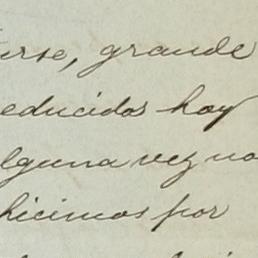 urse, grande
educidos hoy
lguna vez no
hicimos por